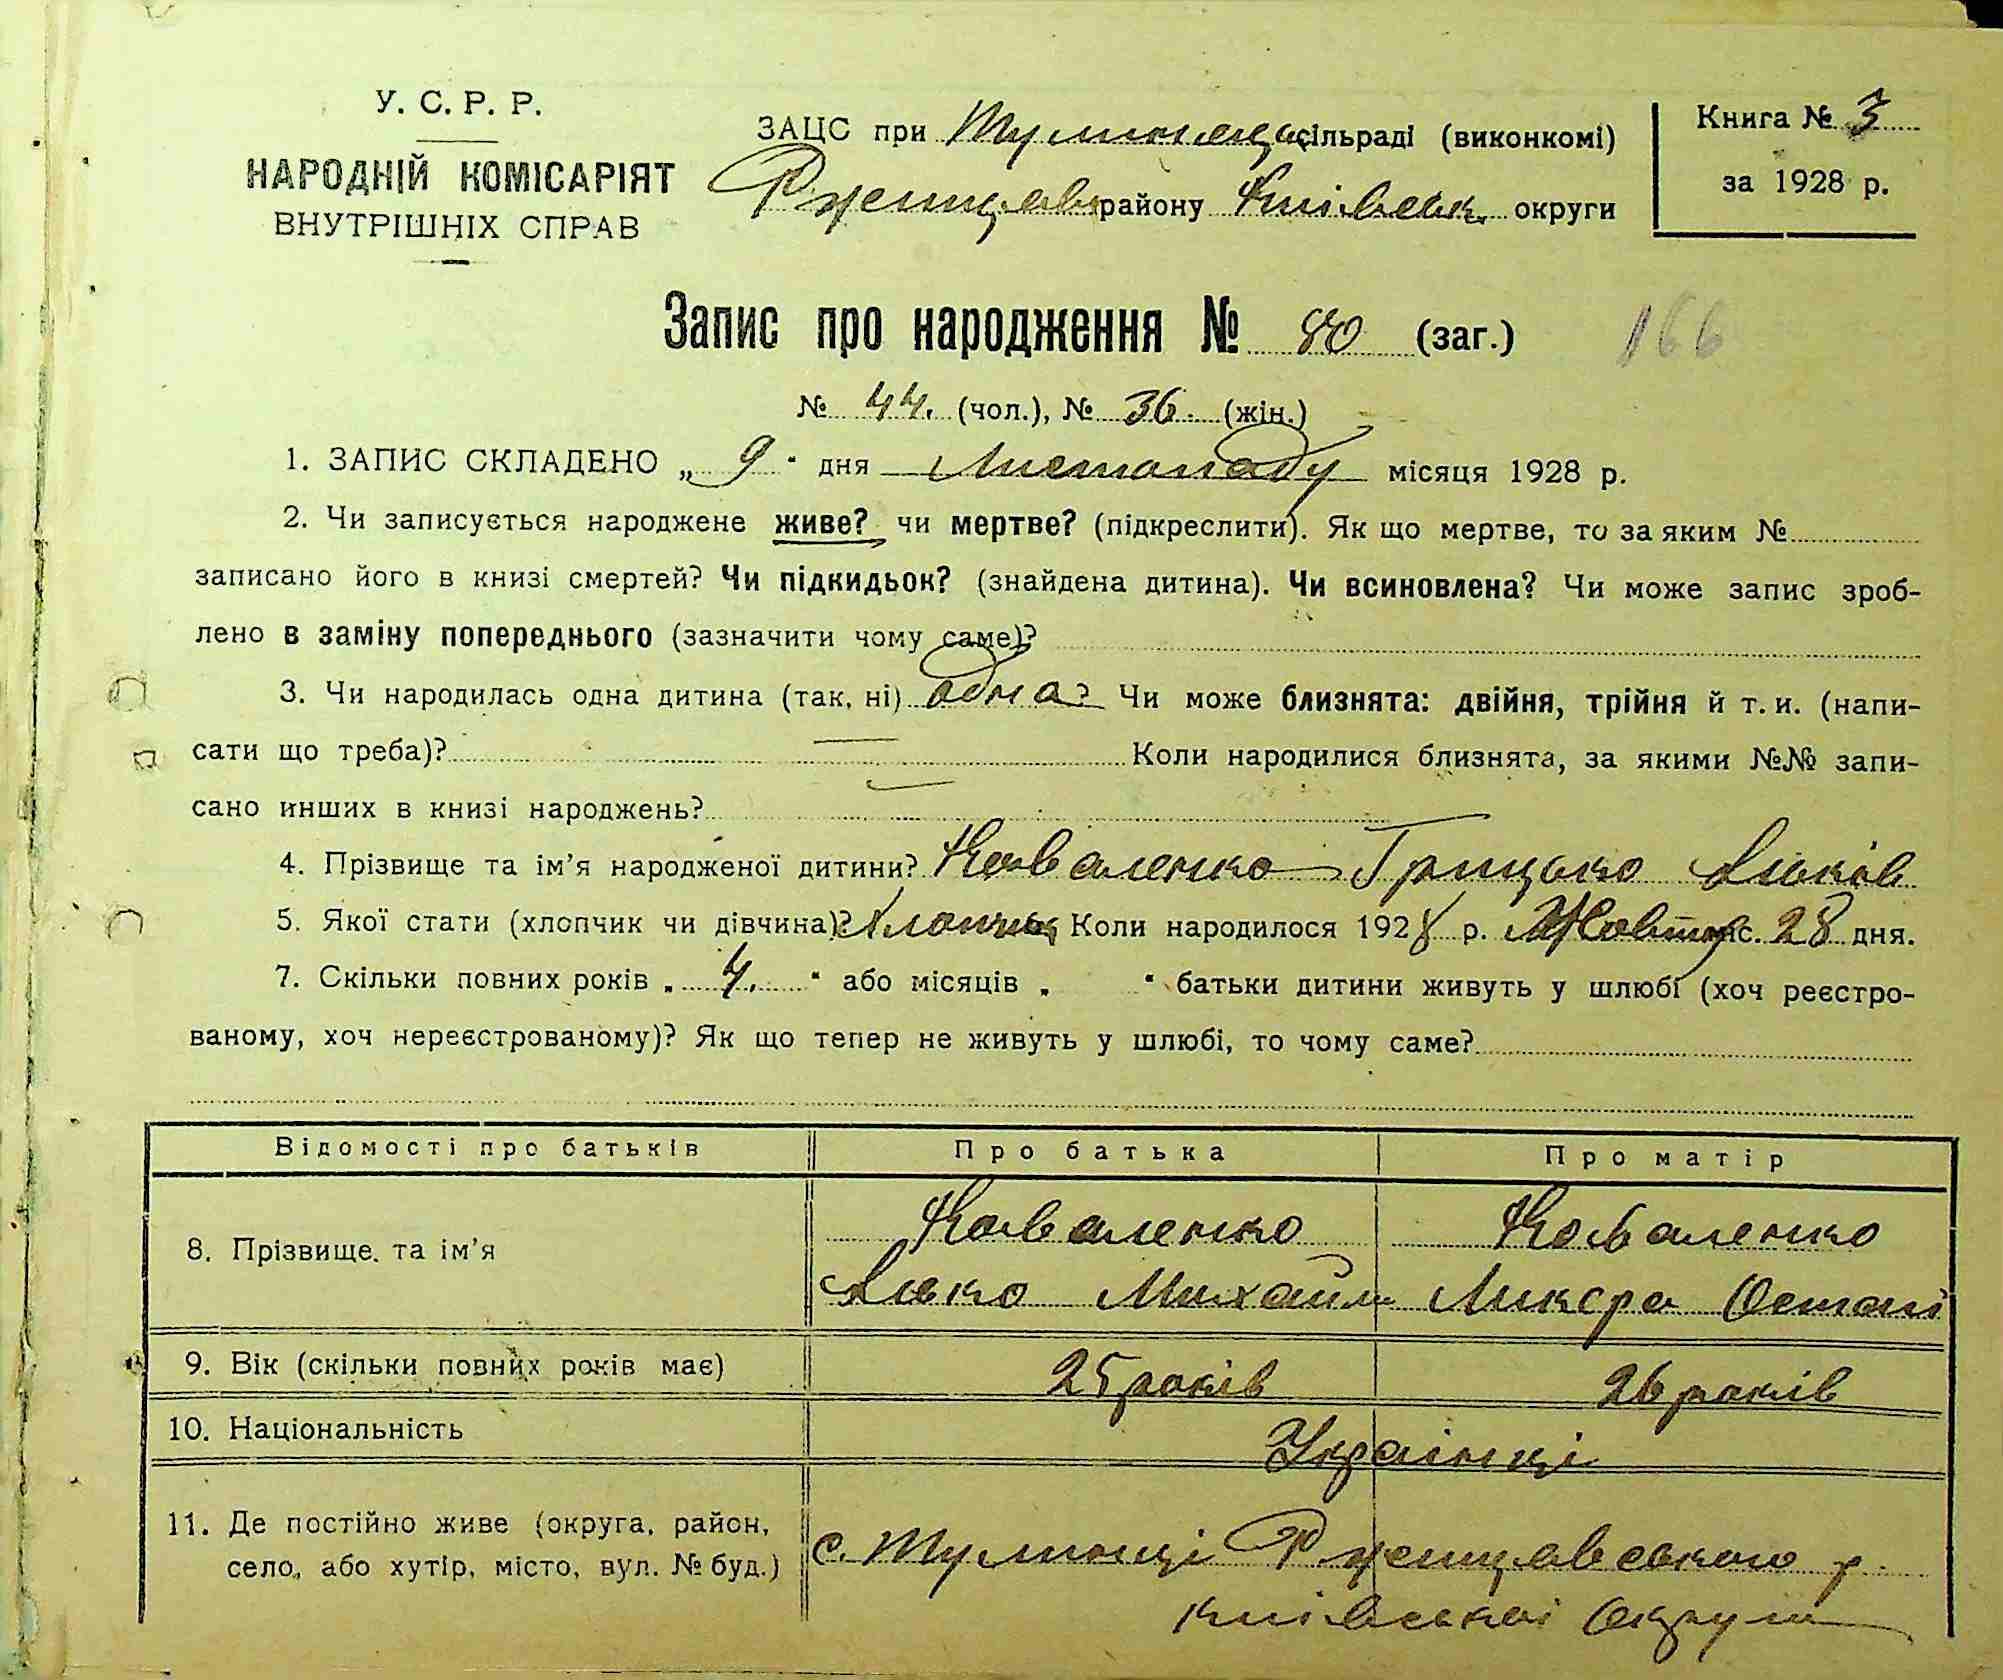 У. С. Р. Р.
НАРОДНІЙ КОМІСАРІЯТ
ВНУТРІШНІХ СПРАВ
ЗАЦС при сільраді (виконкомі)
району Київськ. округи
Книга № 3
за 1928 р.
Запис про народження № 80 (заг.)
166
№ 44. (чол.), № 36. (жін.)
1. ЗАПИС СКЛАДЕНО „ 9 “ дня Листопаду місяця 1928 р.
2. Чи записується народжене живе? чи мертве? (підкреслити). Як що мертве, то за яким №
записано його в книзі смертей? Чи підкидьок? (знайдена дитина). Чи всиновлена? Чи може запис зроб-
лено в заміну попереднього (зазначити чому саме)?
3. Чи народилась одна дитина (так, ні) одна? Чи може близнята: двійня, трійня й т. и. (напи-
сати що треба)? Коли народилися близнята, за якими №№ запи-
сано инших в книзі народжень?
4. Прізвище та ім’я народженої дитини? Коваленко Грицько Льків
5. Якої стати (хлопчик чи дівчина)? Хлопчик Коли народилося 1928 р. Жовтня міс. 28 дня.
7. Скільки повних років „ 4. “ або місяців „ “ батьки дитини живуть у шлюбі (хоч реєстро-
ваному, хоч нереєстрованому)? Як що тепер не живуть у шлюбі, то чому саме?
Відомості про батьків Про батька Про матір
8. Прізвище. та ім’я
Коваленко Коваленко
Лько Михайл Ликера Остап
9. Вік (скільки повних років має) 25 років 26 років
10. Національність Українці
11. Де постійно живе (округа, район,
село, або хутір, місто, вул. № буд.)
с. Тулинці Ржищавського р.
Київської Округи